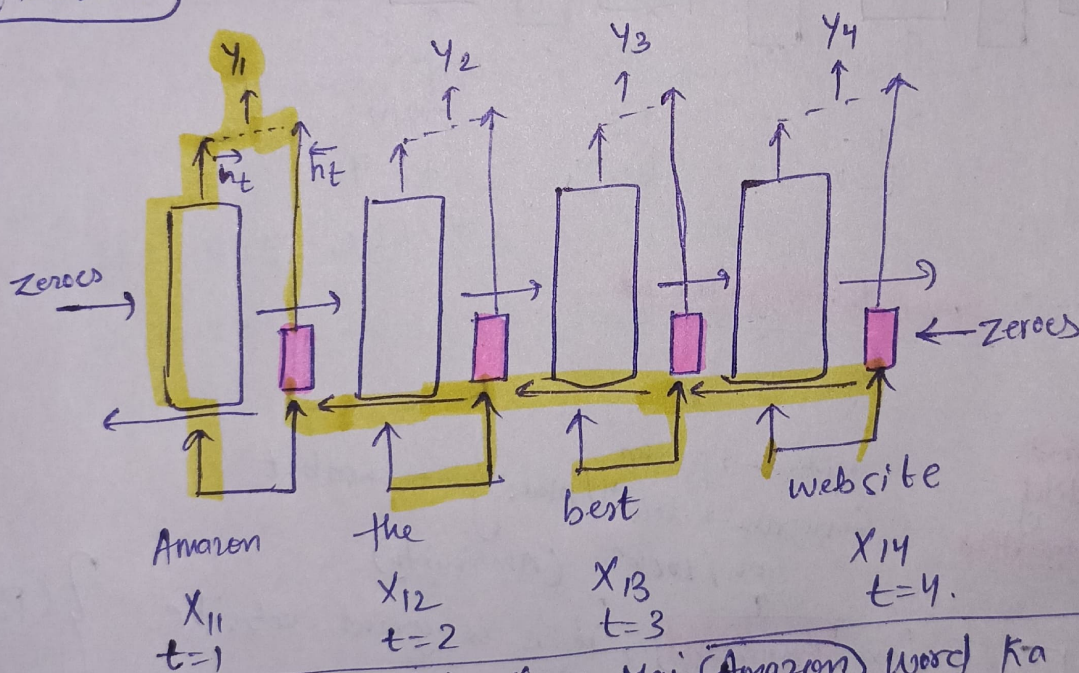 Y1 Y2 Y3 Y4
→ht ←ht
Zeroes
Zeroes
Amazon the best website
X11 X12 X13 X14
t=1 t=2 t=3 t=4.
(Amazon) word ka